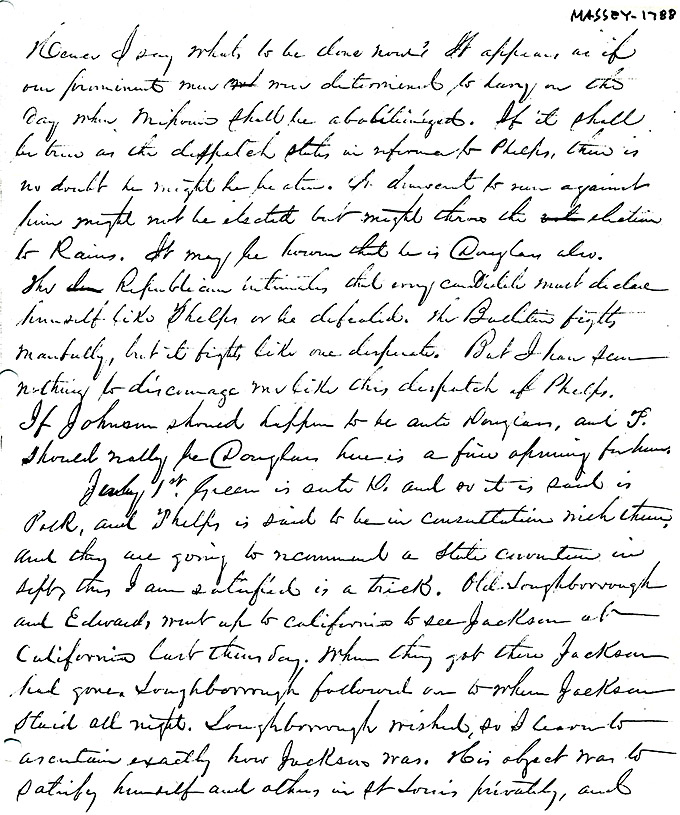 MASSEY-1788
Hence I say what is to be done now? It appears as if
our prominent men were determined to hang on the
day when Missouri shall be abolitionized. If it shall
be true as the despatch states in reference to Phelps, there is
no doubt he might be beaten. A democrat to run against
him might not be elected but might throw the election
to Rains. It may be known that he is Douglas also.
The Republican intimates that every candidate must declare
himself like Phelps or be defeated. The Bulletin fights
manfully, but it fights like one desperate. But I have seen
nothing to discourage me like this despatch of Phelps.
If Johnson should happen to be anti Douglas, and P.
should really be Douglas here is a fine opening for him
July 1st. Green is anti D. and so it is said is
Polk, and Phelps is said to be in consultation with them,
and they are going to recommend a State convention in
Sept, this I am satisfied is a trick. Old Loughborrough
and Edwards went up to California to see Jackson at
California last thursday. When they got there Jackson
had gone. Loughborrough followed on to where Jackson
staid all night. Loughborrough wished, so I learn to
ascertain exactly how Jackson was. His object was to
satisfy himself and others in St Louis privately, and